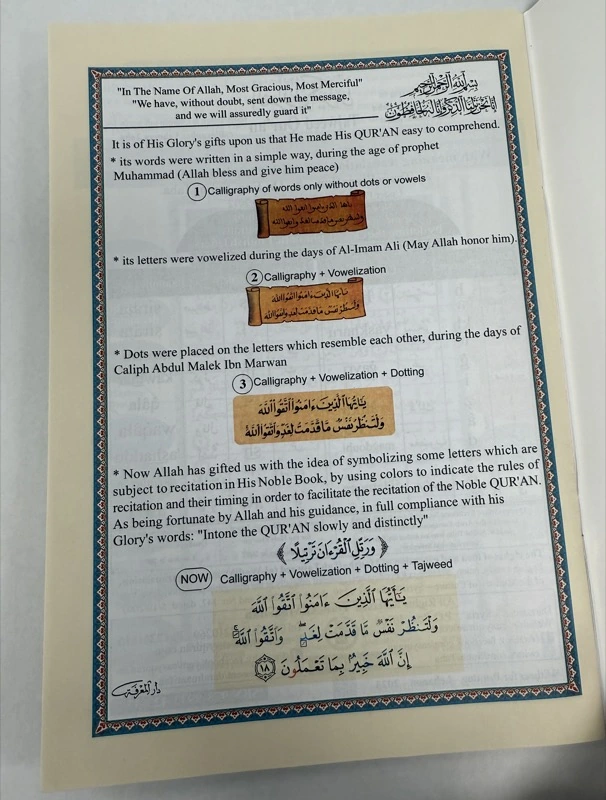 "In The Name Of Allah, Most Gracious, Most Merciful"
"We have, without doubt, sent down the message,
and we will assuredly guard it"
بسم الله الرحمن الرحيم
إنا نحن نزلنا الذكر وإنا له لحافظون
It is of His Glory's gifts upon us that He made His QUR'AN easy to comprehend.
* its words were written in a simple way, during the age of prophet
Muhammad (Allah bless and give him peace)
1 Calligraphy of words only without dots or vowels
* its letters were vowelized during the days of Al-Imam Ali (May Allah honor him).
2 Calligraphy + Vowelization
* Dots were placed on the letters which resemble each other, during the days of
Caliph Abdul Malek Ibn Marwan
3 Calligraphy + Vowelization + Dotting
يَٰٓأَيُّهَا ٱلَّذِينَ ءَامَنُوا۟ ٱتَّقُوا۟ ٱللَّهَ
وَلْتَنظُرْ نَفْسٌ مَّا قَدَّمَتْ لِغَدٍ وَٱتَّقُوا۟ ٱللَّهَ
* Now Allah has gifted us with the idea of symbolizing some letters which are
subject to recitation in His Noble Book, by using colors to indicate the rules of
recitation and their timing in order to facilitate the recitation of the Noble QUR'AN.
As being fortunate by Allah and his guidance, in full compliance with his
Glory's words: "Intone the QUR'AN slowly and distinctly"
﴿ وَرَتِّلِ ٱلْقُرْءَانَ تَرْتِيلًا ﴾
NOW Calligraphy + Vowelization + Dotting + Tajweed
يَٰٓأَيُّهَا ٱلَّذِينَ ءَامَنُوا۟ ٱتَّقُوا۟ ٱللَّهَ
وَلْتَنظُرْ نَفْسٌ مَّا قَدَّمَتْ لِغَدٍۖ وَٱتَّقُوا۟ ٱللَّهَۚ
إِنَّ ٱللَّهَ خَبِيرٌۢ بِمَا تَعْمَلُونَ ١٨
دار المعرفة